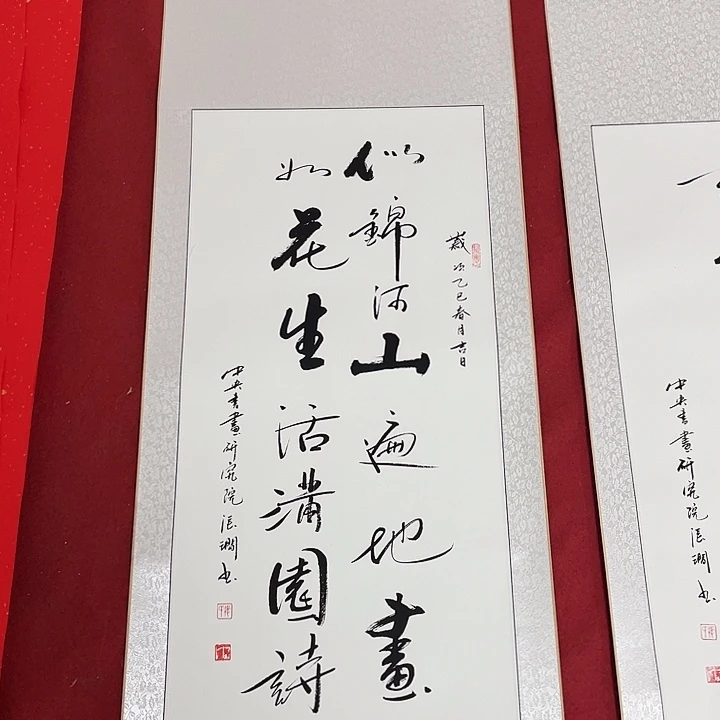 歲次乙巳春月吉日
似錦河山遍地畫
如花生活滿園詩
中央書畫研究院張 书
中央書畫研究院張 书